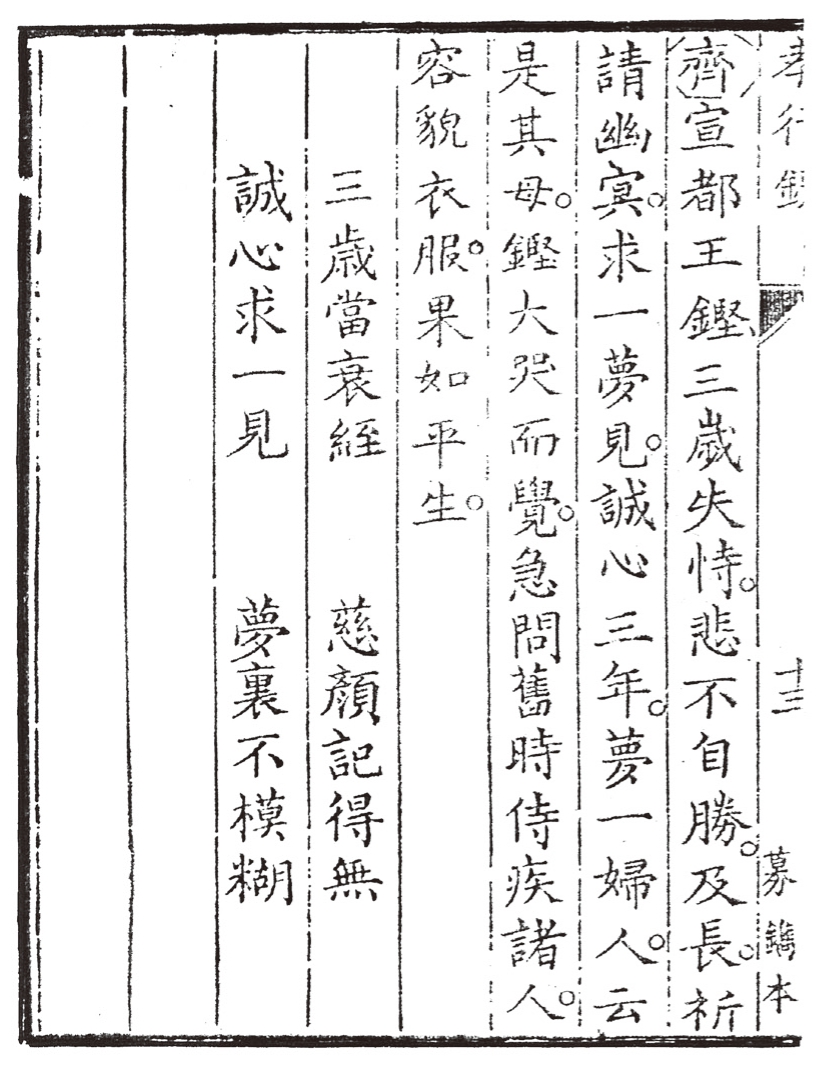 孝行錄 十三 募鐫本
齊宣都王鏗三歲失恃。悲不自勝。及長。祈
請幽㝠。求一夢見。誠心三年。夢一婦人。云
是其母。鏗大哭而覺。急問舊時侍疾諸人。
容貌衣服。果如平生。
三歳當衰絰 慈顏記得無
誠心求一見 夢裏不模糊